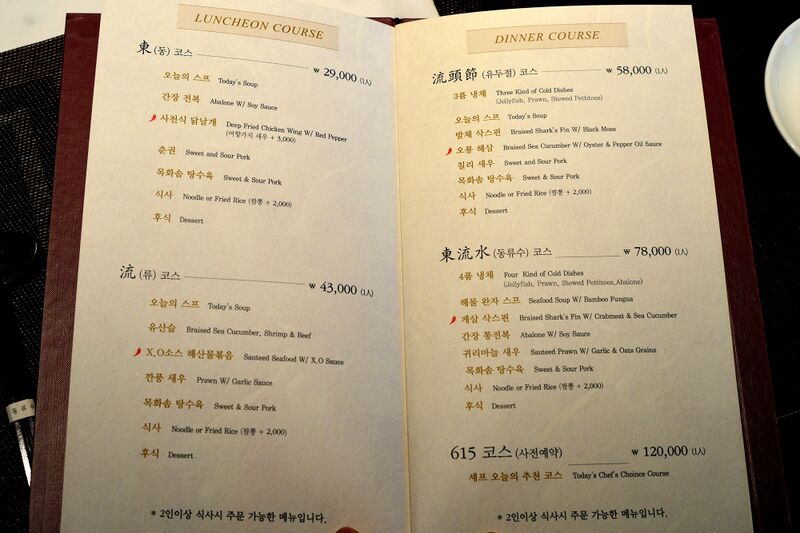 LUNCHEON COURSE
東 (동) 코스 ₩ 29,000 (1人)
오늘의 스프 Today's Soup
간장 전복 Abalone W/ Soy Sauce
사천식 닭날개 Deep Fried Chicken Wing W/ Red Pepper
(어향가지 새우 + 3,000)
춘권 Sweet and Sour Pork
목화솜 탕수육 Sweet & Sour Pork
식사 Noodle or Fried Rice (짬뽕 + 2,000)
후식 Dessert
流 (류) 코스 ₩ 43,000 (1人)
오늘의 스프 Today's Soup
유산슬 Braised Sea Cucumber, Shrimp & Beef
X.O소스 해산물볶음 Sauteed Seafood W/ X.O Sauce
깐풍 새우 Prawn W/ Garlic Sauce
목화솜 탕수육 Sweet & Sour Pork
식사 Noodle or Fried Rice (짬뽕 + 2,000)
후식 Dessert
* 2인이상 식사시 주문 가능한 메뉴입니다.
DINNER COURSE
流頭節 (유두절) 코스 ₩ 58,000 (1人)
3품 냉채 Three Kind of Cold Dishes
(Jellyfish, Prawn, Stewed Pettitoes)
오늘의 스프 Today's Soup
발채 삭스핀 Braised Shark's Fin W/ Black Moss
오룡 해삼 Braised Sea Cucumber W/ Oyster & Pepper Oil Sauce
칠리 새우 Sweet and Sour Pork
목화솜 탕수육 Sweet & Sour Pork
식사 Noodle or Fried Rice (짬뽕 + 2,000)
후식 Dessert
東流水 (동류수) 코스 ₩ 78,000 (1人)
4품 냉채 Four Kind of Cold Dishes
(Jellyfish, Prawn, Stewed Pettitoes,Abalone)
해물 완자 스프 Seafood Soup W/ Bamboo Fungus
게살 삭스핀 Braised Shark's Fin W/ Crabmeat & Sea Cucumber
간장 통전복 Abalone W/ Soy Sauce
귀리마늘 새우 Sauteed Prawn W/ Garlic & Oats Grains
목화솜 탕수육 Sweet & Sour Pork
식사 Noodle or Fried Rice (짬뽕 + 2,000)
후식 Dessert
615 코스 (사전예약) ₩ 120,000 (1人)
셰프 오늘의 추천 코스 Today's Chef's Choince Course
* 2인이상 식사시 주문 가능한 메뉴입니다.
동류수